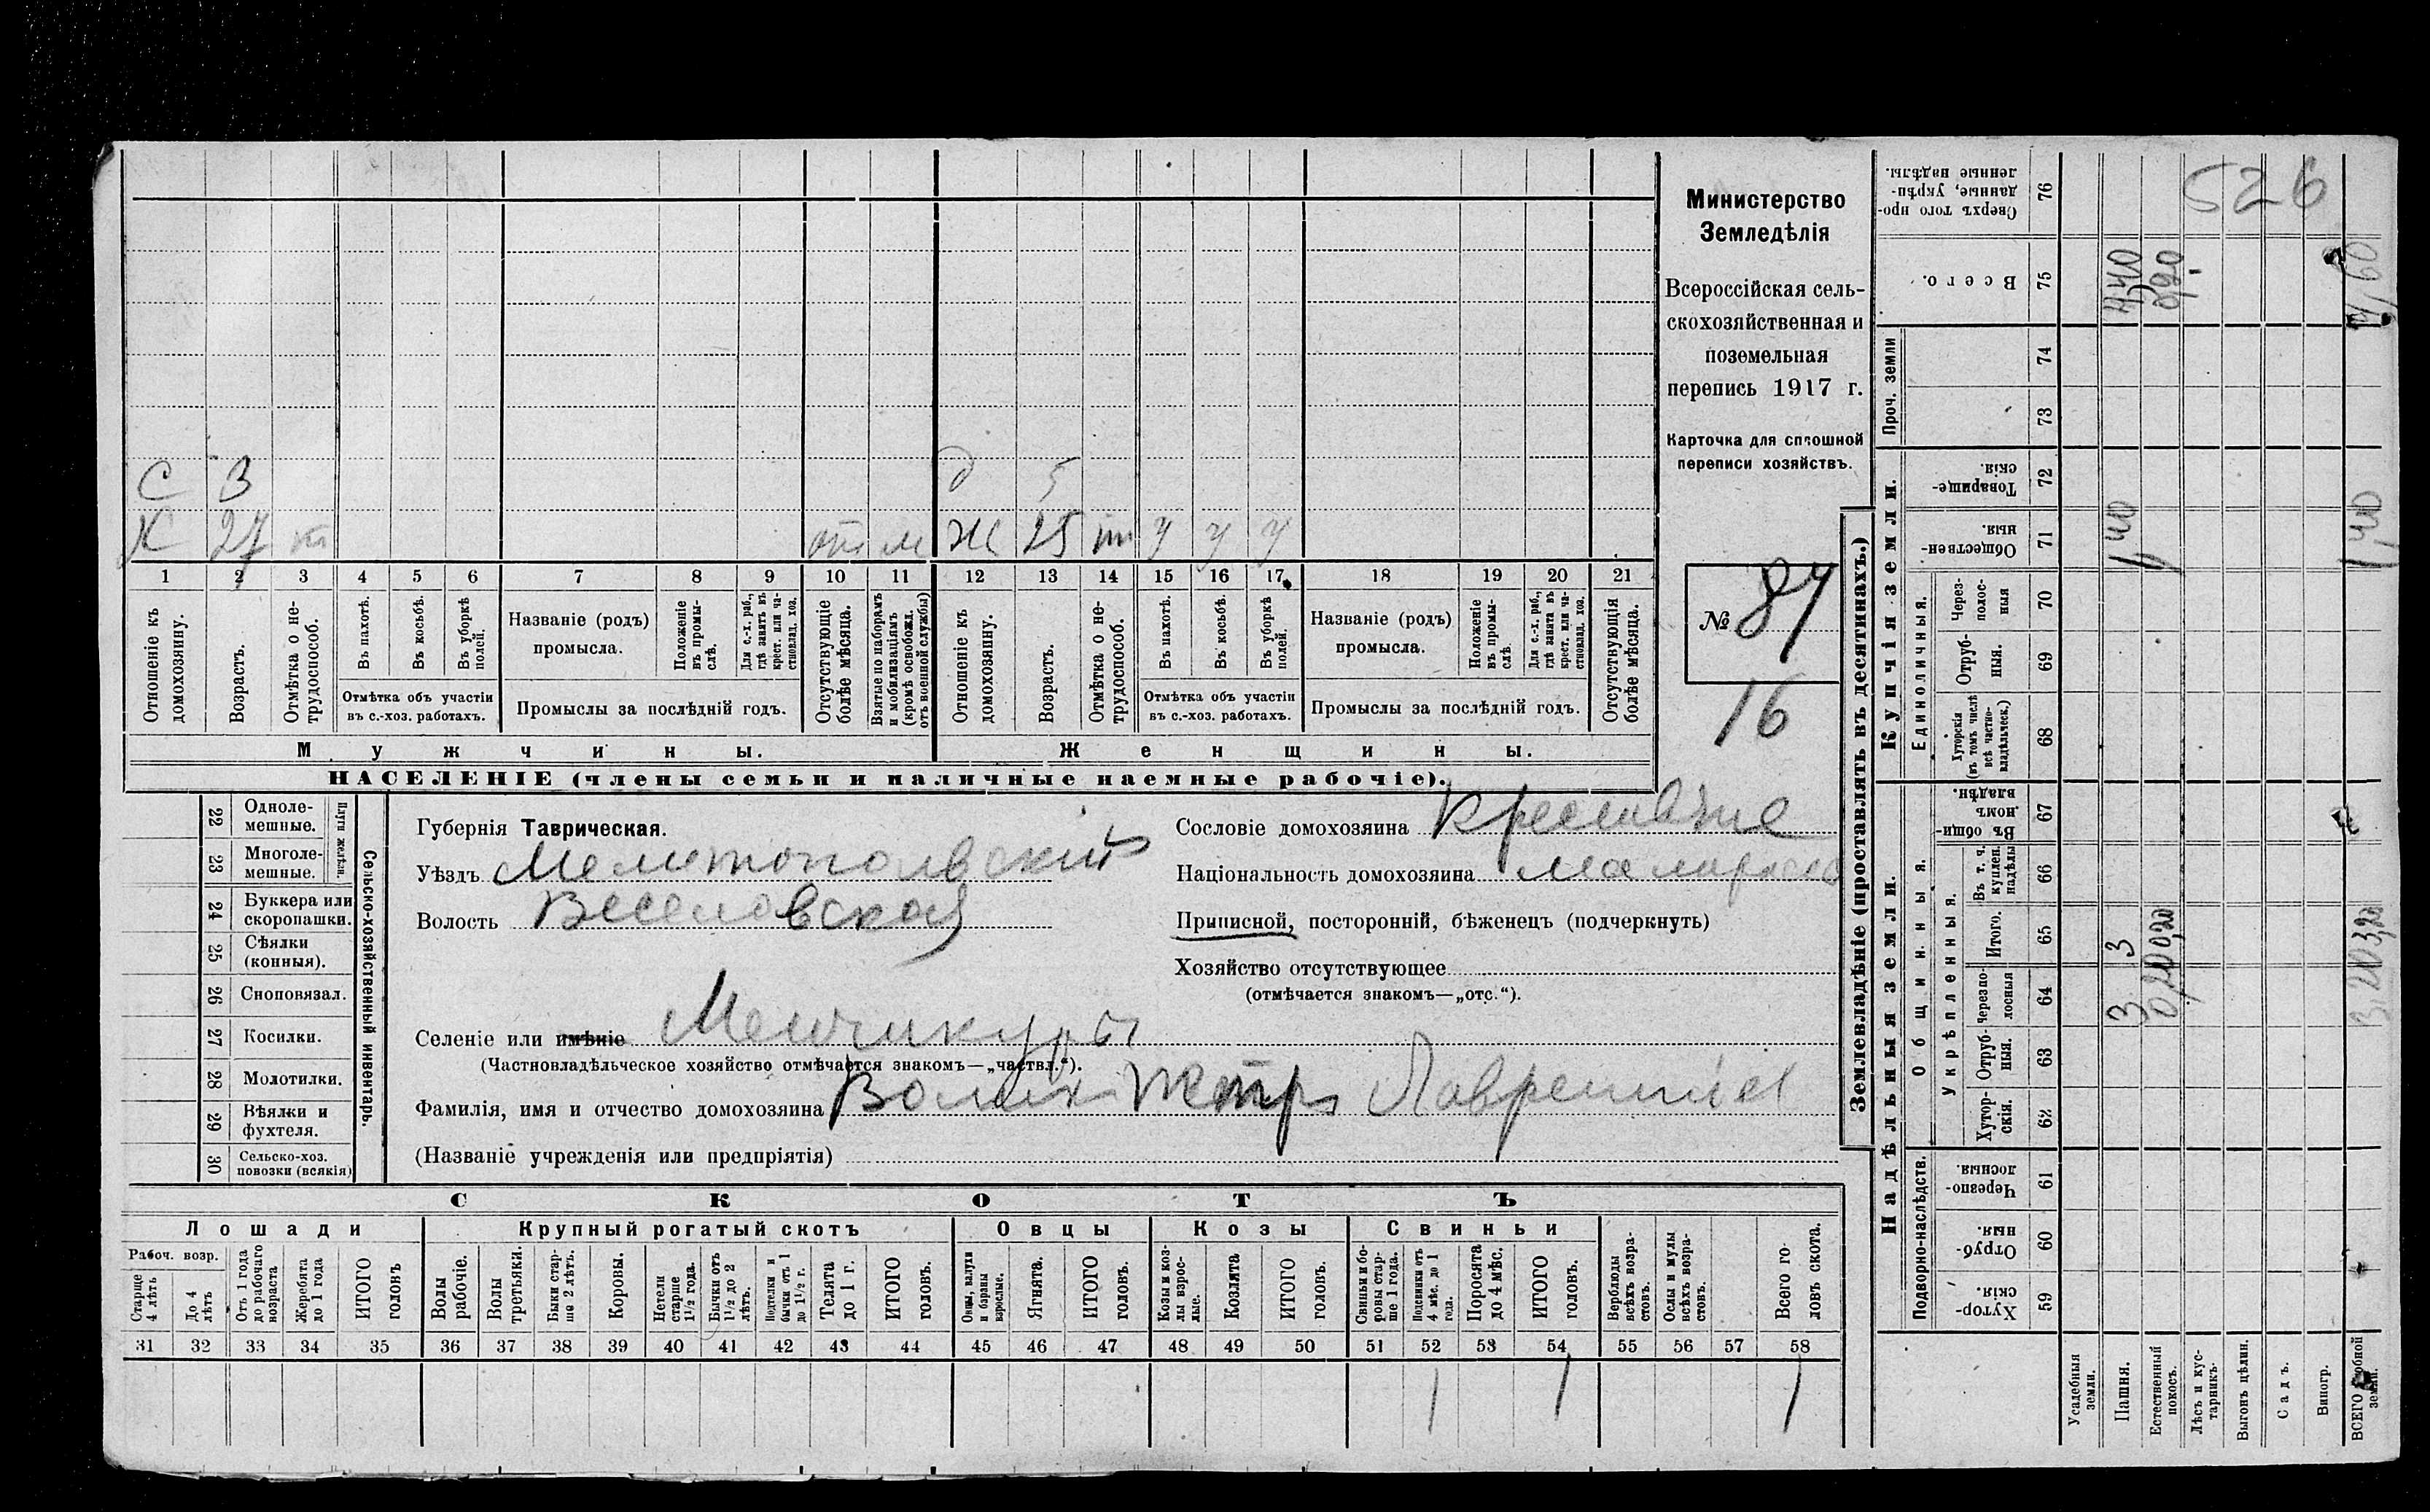 С 3 д 5
К 27 т от м Ж 25 т у у у
1 2 3 4 5 6 7 8 9 10 11 12 13 14 15 16 17 18 19 20 21
Отношеніе къ домохозяину.
Возрастъ.
Отмѣтка о не-трудоспособ.
Въ пахотѣ.
Въ косьбѣ.
Въ уборкѣ полей.
Отмѣтка объ участіи
въ с.-хоз. работахъ.
Названіе (родъ)
промысла.
Положеніе въ промы-слѣ.
Для с.-х. раб., гдѣ занятъ въ крест. или ча-стновлад. хоз.
Промыслы за послѣдній годъ.
Отсутствующіе болѣе мѣсяца.
Взятые по наборамъ и мобилизаціямъ (кромѣ освобожд. отъ военной службы)
Отношеніе къ домохозяину.
Возрастъ.
Отмѣтка о не-трудоспособ.
Въ пахотѣ.
Въ косьбѣ.
Въ уборкѣ полей.
Отмѣтка объ участіи
въ с.-хоз. работахъ.
Названіе (родъ)
промысла.
Положеніе въ промы-слѣ.
Для с.-х. раб., гдѣ занята въ крест. или ча-стновлад. хоз.
Промыслы за послѣдній годъ.
Отсутствующія болѣе мѣсяца.
Мужчины. Женщины.
НАСЕЛЕНІЕ (члены семьи и наличные наемные рабочіе).
Министерство
Земледѣлія
Всероссійская сель-
скохозяйственная и
поземельная
перепись 1917 г.
Карточка для сплошной
переписи хозяйствъ.
№ 87
16
22 Одноле-мешные.
23 Многоле-мешные.
Плуги желѣзн.
24 Буккера или скоропашки.
25 Сѣялки (конныя).
26 Сноповязал.
27 Косилки.
28 Молотилки.
29 Вѣялки и фухтеля.
30 Сельско-хоз. повозки (всякія)
Сельско-хозяйственный инвентарь.
Губернія Таврическая.
Уѣздъ Мелитопольскій
Волость Веселовская
Селеніе или имѣніе Менчикуры
(Частновладѣльческое хозяйство отмѣчается знакомъ—„частвл.“).
Фамилія, имя и отчество домохозяина Волик Петръ
(Названіе учрежденія или предпріятія)
Сословіе домохозяина
Національность домохозяина
Приписной, посторонній, бѣженец (подчеркнуть)
Хозяйство отсутствующее
(отмѣчается знакомъ—„отс.“).
СКОТЪ
Лошади Крупный рогатый скотъ Овцы Козы Свиньи
Рабоч. возр.
Старше 4 лѣтъ
До 4 лѣтъ
Отъ 1 года до рабочаго возраста
Жеребята до 1 года
ИТОГО головъ
Волы рабочіе.
Волы третьяки.
Быки стар-ше 2 лѣтъ.
Коровы.
Нетели старше 1½ года.
Бычки отъ 1½ до 2 лѣтъ.
Подтелки и бычки отъ 1 до 1½ г.
Телята до 1 г.
ИТОГО головъ.
Овцы, валухи и бараны взрослые.
Ягнята.
ИТОГО головъ.
Козы и коз-лы взрос-лые.
Козлята
ИТОГО головъ.
Свиньи и бо-ровы стар-ше 1 года.
Подсвинки отъ 4 мѣс. до 1 года.
Поросята до 4 мѣс.
ИТОГО головъ.
Верблюды всѣхъ возра-стовъ.
Ослы и мулы всѣхъ возра-стовъ.
Всего го-ловъ скота.
31 32 33 34 35 36 37 38 39 40 41 42 43 44 45 46 47 48 49 50 51 52 53 54 55 56 57 58
1 1 1
Землевладѣніе (проставлять въ десятинахъ.)
Надѣльныя земли. Купчія земли. Проч. земли
Подворно-наслѣдств.
Общинныя.
Укрѣпленныя.
Единоличныя.
Сверхъ того про-данные, укрѣп-ленные надѣлы. 76
526
Всего. 75 4,40 0,20 4,60
74
73
Товарище-скія. 72
Обществен-ныя. 71 1,40 1,40
Через-полос-ныя 70
Отруб-ныя. 69
Хуторскія (въ томъ числѣ всѣ частно-владѣльческ.) 68
Въ общин-номъ владѣн. 67
Въ т. ч. куплен. надѣлы 66
Итого. 65 3 0,20 3,20
Черезпо-лосныя 64 3 0,20 3,20
Отруб-ныя. 63
Хутор-скія. 62
Черезпо-лосныя. 61
Отруб-ныя. 60
Хутор-скія. 59
Усадебныя земли.
Пашня.
Естественный покосъ.
Лѣсъ и кус-тарникъ.
Выгонъ цѣлин.
Садъ.
Виногр.
ВСЕГО удобной земли.